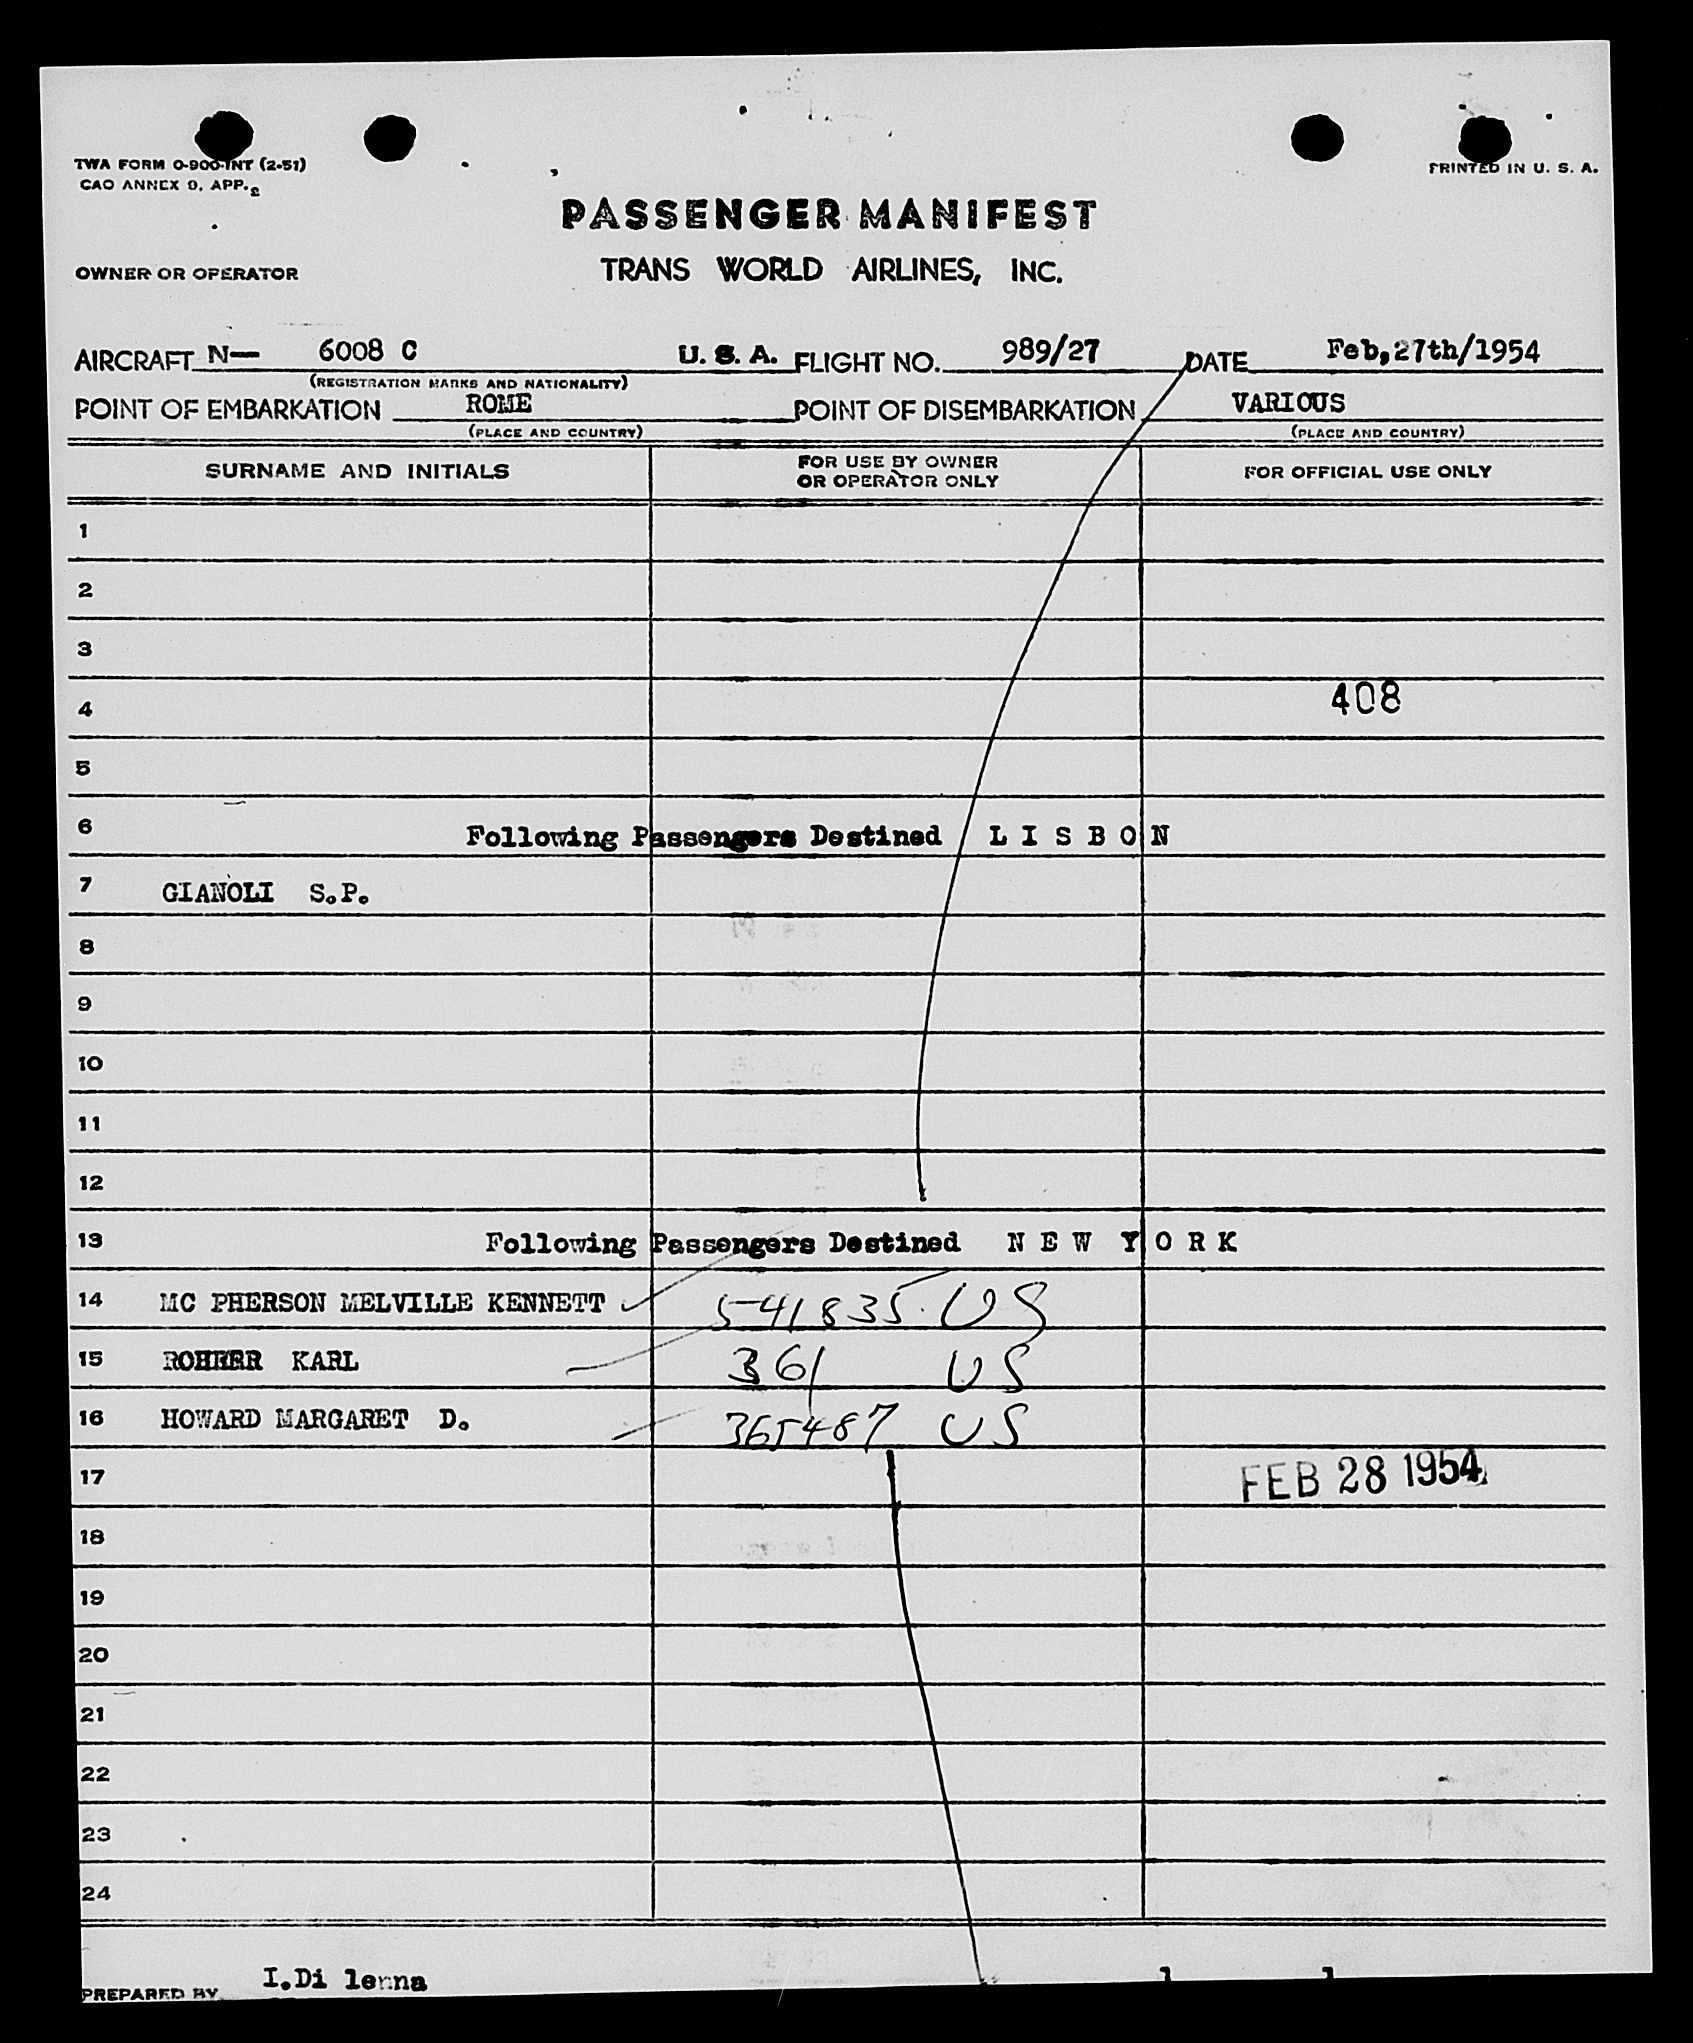 TWA FORM O-900-INT (2-51)
PRINTED IN U. S. A.
CAO ANNEX 9, APP. 2
PASSENGER MANIFEST
OWNER OR OPERATOR
TRANS WORLD AIRLINES, INC.
AIRCRAFT N— 6008 C U. S. A. FLIGHT NO. 989/27 DATE Feb,27th/1954
(REGISTRATION MARKS AND NATIONALITY)
POINT OF EMBARKATION ROME POINT OF DISEMBARKATION VARIOUS
(PLACE AND COUNTRY) (PLACE AND COUNTRY)
SURNAME AND INITIALS FOR USE BY OWNER OR OPERATOR ONLY FOR OFFICIAL USE ONLY
1
2
3
4 408
5
6 Following Passengers Destined L I S B O N
7 GIANOLI S.P.
8
9
10
11
12
13 Following Passengers Destined N E W Y O R K
14 MC PHERSON MELVILLE KENNETT 541835 US
15 ROHRER KARL 361 US
16 HOWARD MARGARET D. 365487 US
17 FEB 28 1954
18
19
20
21
22
23
24
PREPARED BY I.Di lenna